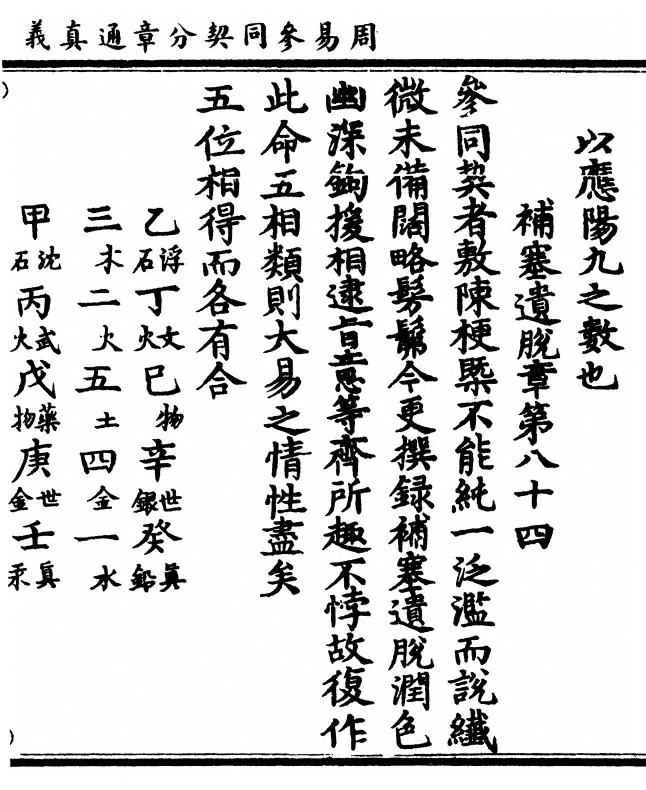 周易參同契分章通真義
以應陽九之數也
補塞遺脫章第八十四
參同契者敷陳梗槩不能純一泛濫而說纖
微未備闊略髣髴今更撰録補塞遺脫潤色
幽深鉤援相逮旨意等齊所趣不悖故復作
此命五相類則大易之情性盡矣
五位相得而各有合
乙浮石丁文火巳物辛世銀癸眞鉛
三木二火五土四金一水
甲沈石丙武火戊藥物庚世金壬眞汞